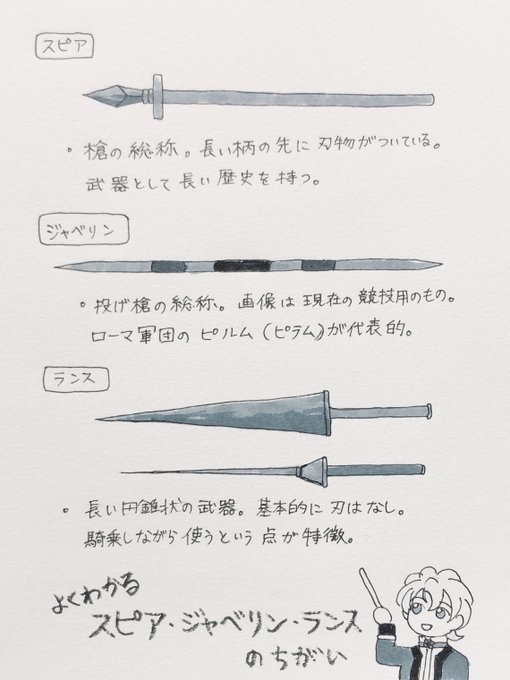 スピア
・槍の総称。長い柄の先に刃物がついている。
武器として長い歴史を持つ。
ジャベリン
・投げ槍の総称。画像は現在の競技用のもの。
ローマ軍団のピルム(ピラム)が代表的。
ランス
・長い円錐状の武器。基本的に刃はなし。
騎乗しながら使うという点が特徴。
よくわかる
スピア・ジャベリン・ランス
のちがい